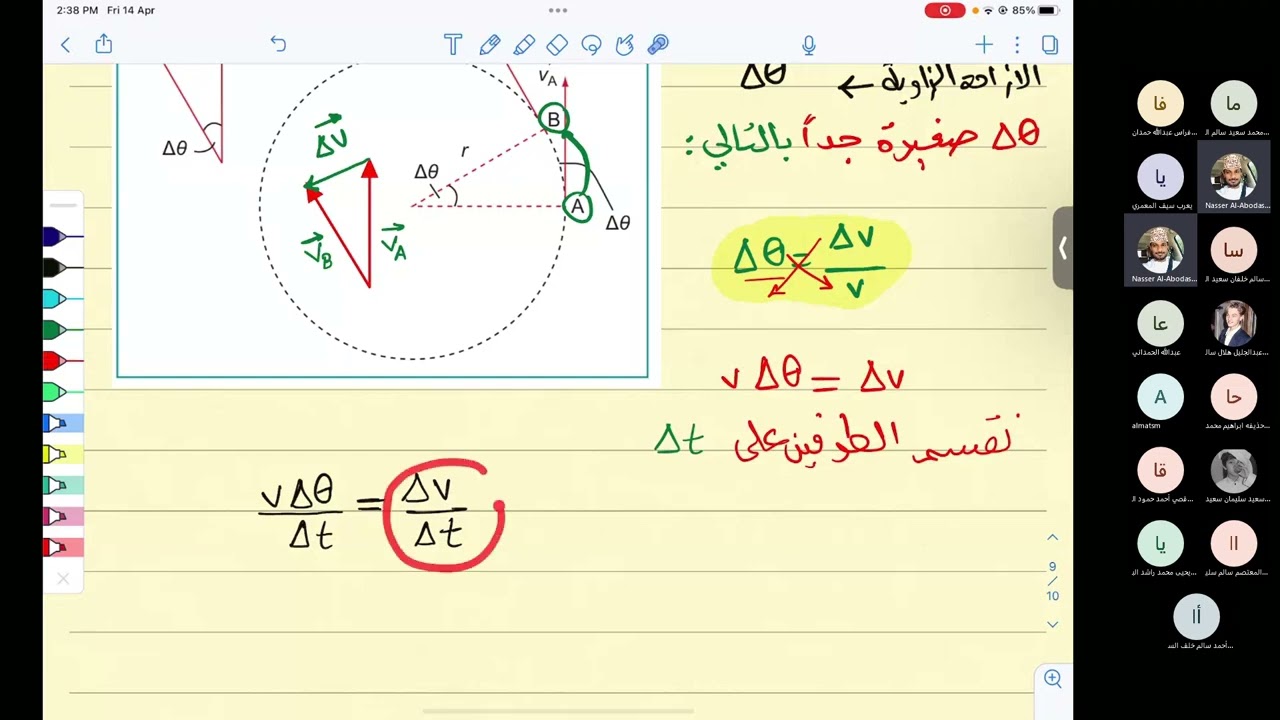 2:38 PM Fri 14 Apr
85%
الازاحة الزاوية ← Δθ
Δθ صغيرة جداً بالتالي :
Δθ = Δv / v
v Δθ = Δv
نقسم الطرفين على Δt
vΔθ / Δt = Δv / Δt
Δθ
Δv
v_B
v_A
r
Δθ
v_A
B
A
Δθ
9
/
10
فا
فراس عبدالله حمدان...
ما
محمد سعيد سالم ال...
يا
يعرب سيف المعمري
Nasser Al-Abodas...
Nasser Al-Abodas...
سا
سالم خلفان سعيد ال...
عا
عبدالله الحمداني
عبدالجليل هلال سال...
A
almatsm
حا
حذيفه ابراهيم محمد...
قا
قصي أحمد حمود ال...
سعيد سليمان سعيد...
يا
يحيى محمد راشد الي...
اا
المعتصم سالم سلي...
أا
أحمد سالم خلف الس...